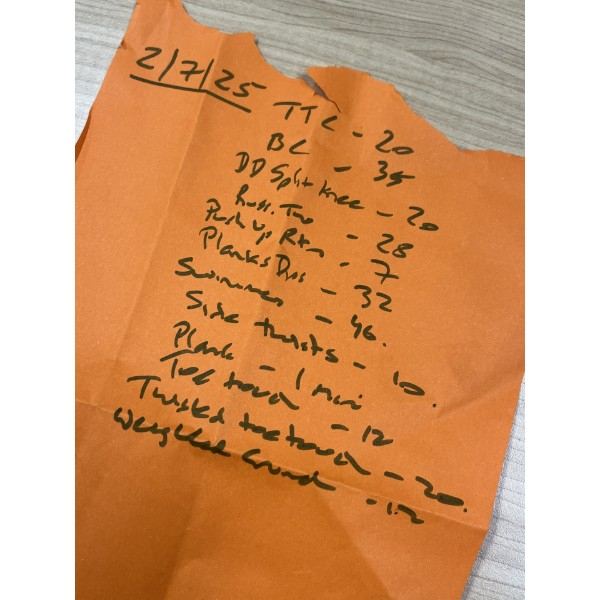 2/7/25
TTC - 20
BC - 35
DD Split knee - 20
Russ. Tw - 28
Push Up Rtn - 7
Planks - 32
Swimmer - 46.
Side twists - 10.
Plank - 1 min
Toe touch - 12
Twisted toe touch - 20.
Weighted Crunch - 12